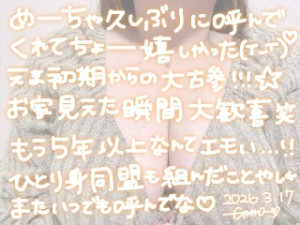 めーちゃ久しぶりに呼んで
くれてちょー嬉しかった(T_T)♡
えま初期からの大古参!!!☆
お客見えた瞬間大歓喜笑
もう5年以上なんてエモい...!!
ひとり身同盟も組んだことやし
またいつでも呼んでな♡ 2026.3.17
Emma